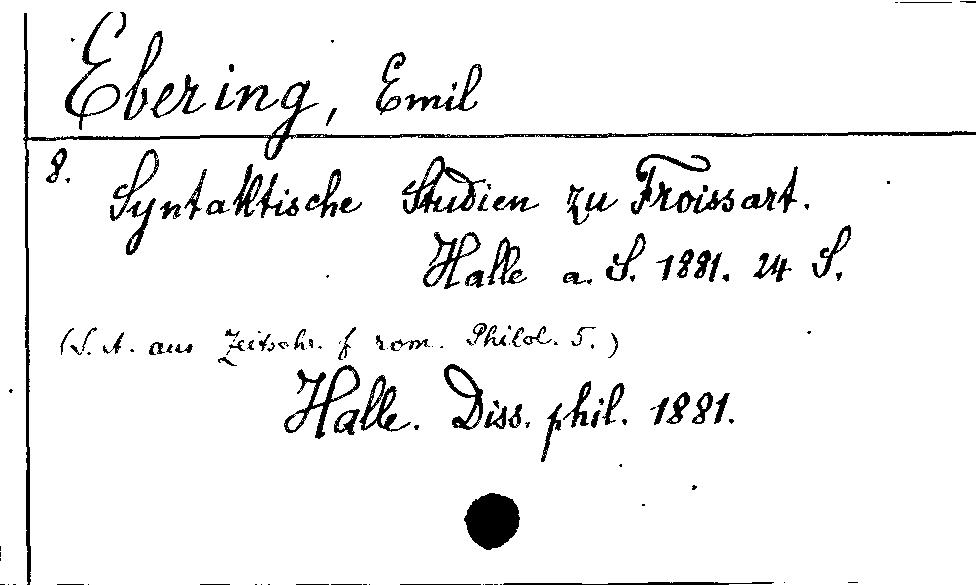 Ebering, Emil
8. Syntaktische Studien zu Froissart.
Halle a. S. 1881. 24 S.
(S. A. aus Zeitschr. f rom. Philol. 5.)
Halle. Diss. phil. 1881.